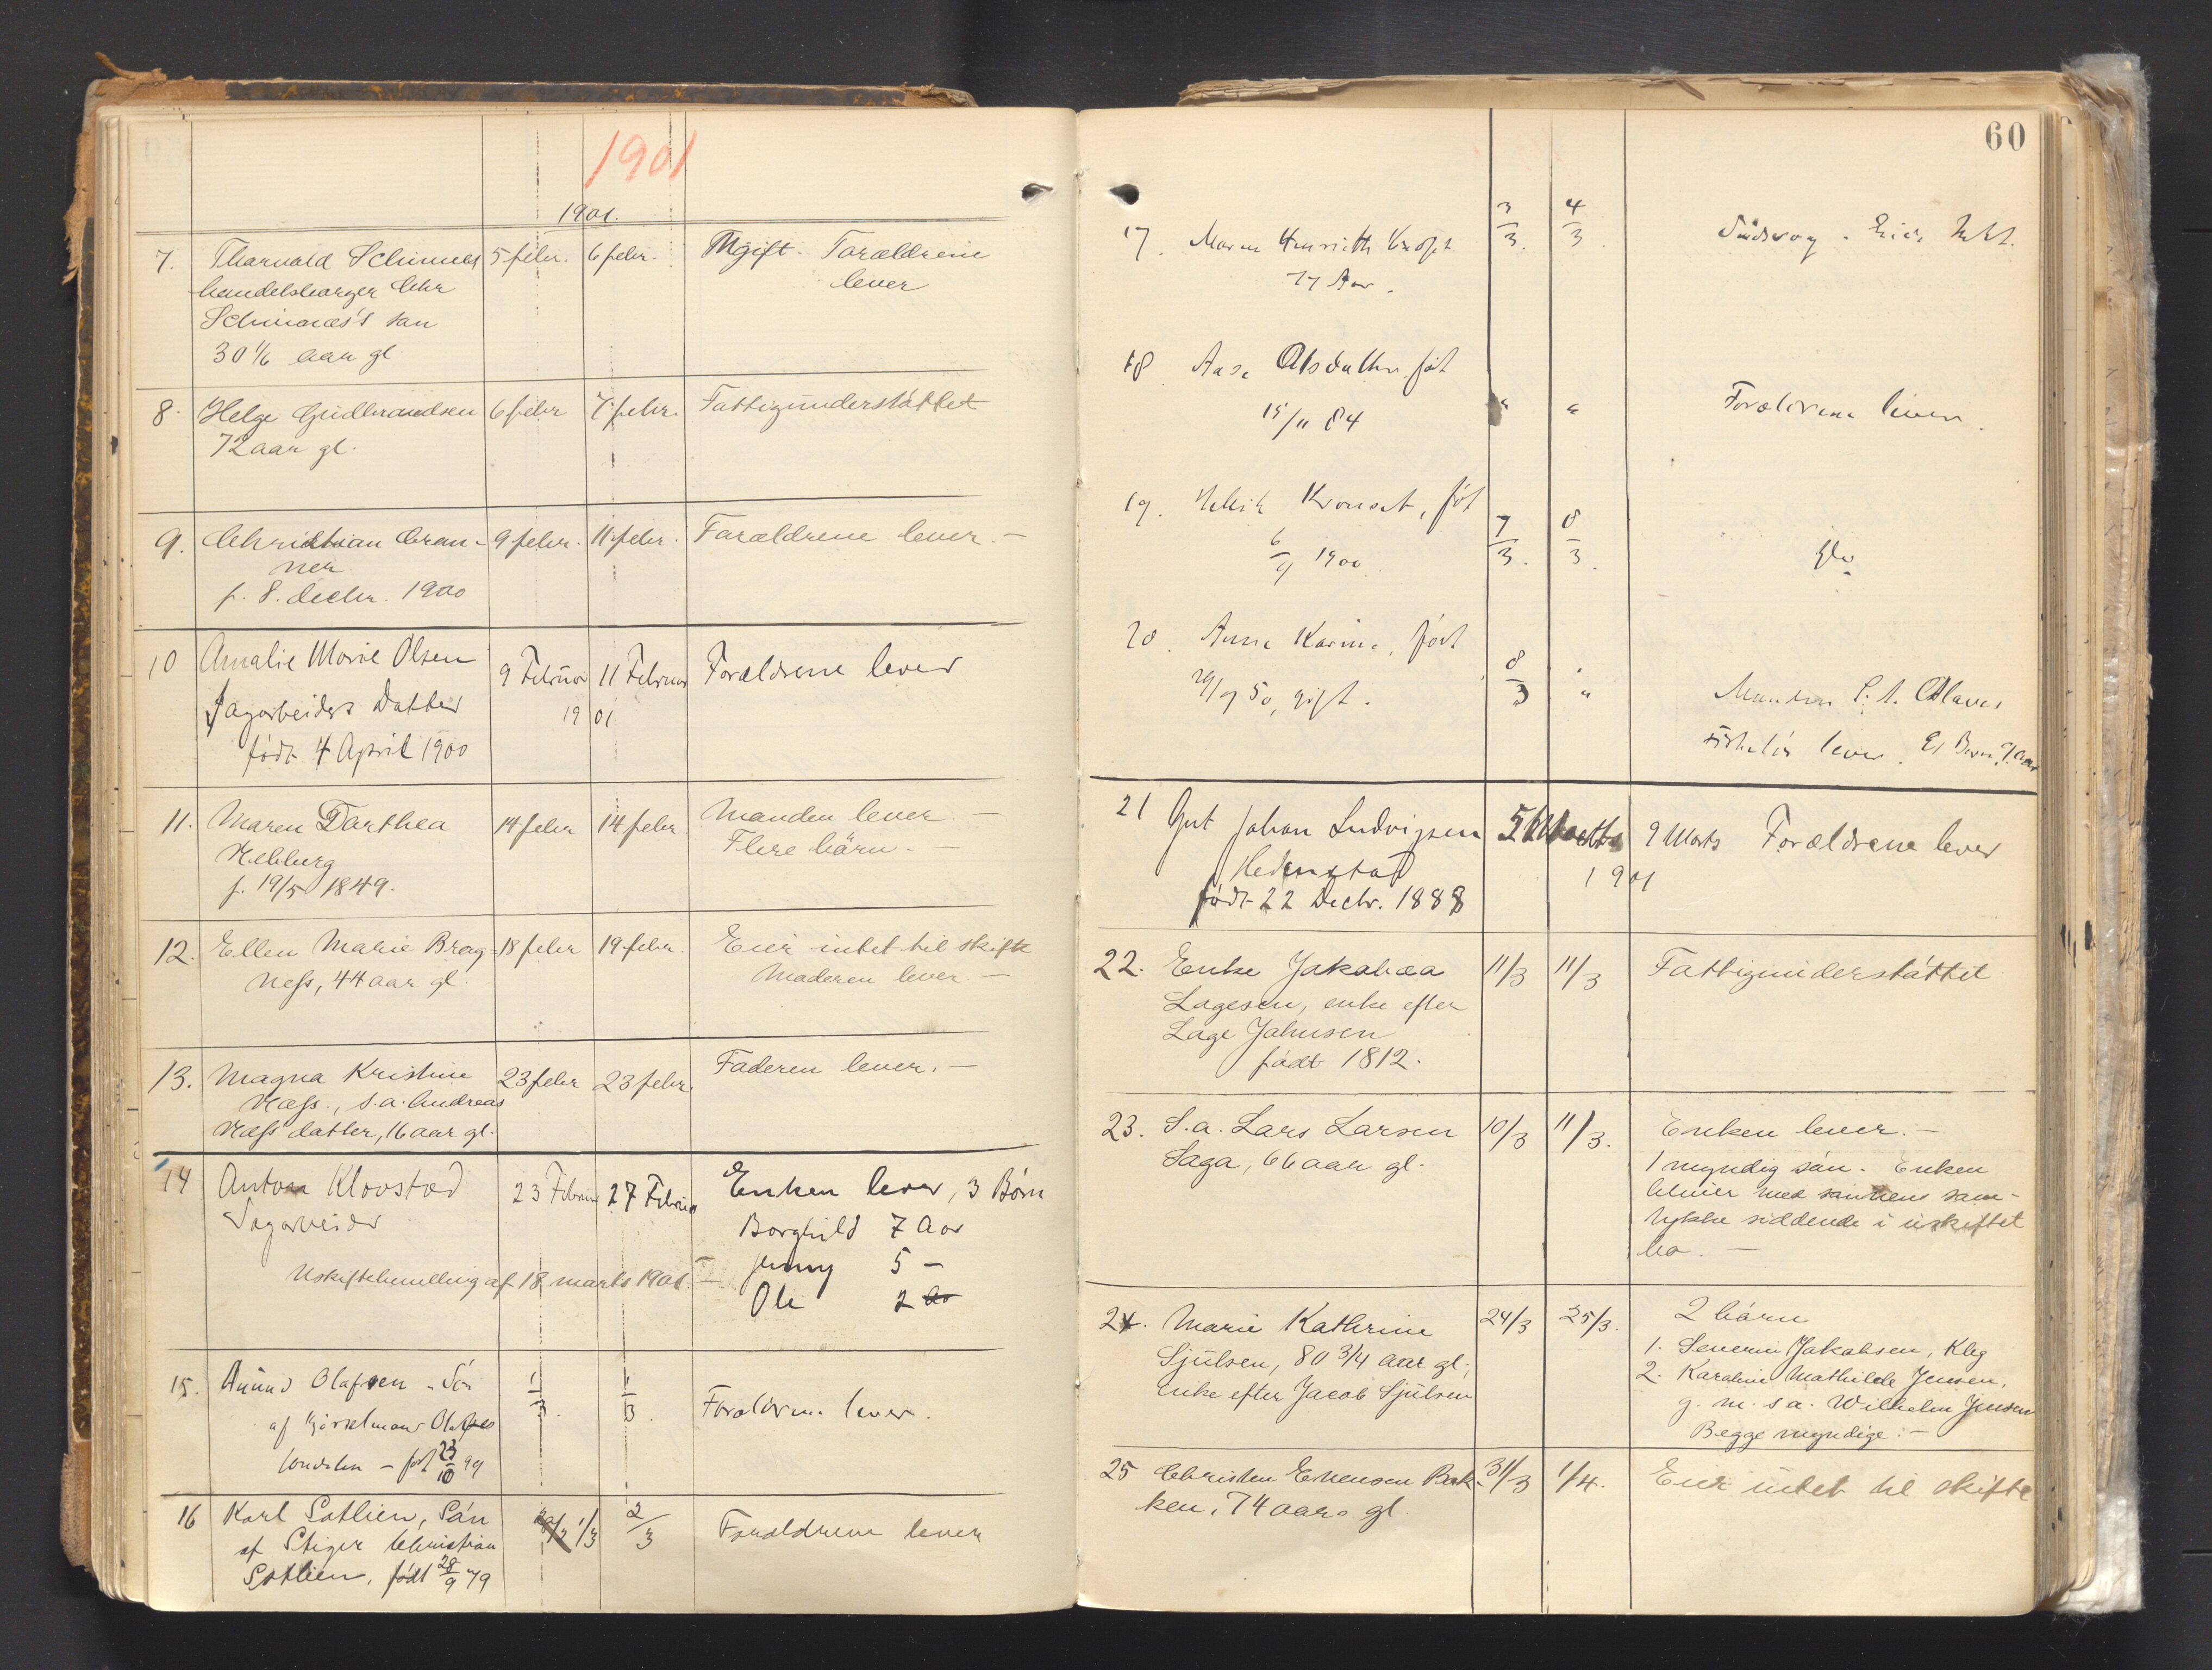 1901
1901.
7. Tharvald Schinnes 5 febr. 6 febr. Ugift. Forældrene
handelsborger Chr lever
Schinnes's søn
30 1/6 aar gl
8. Helge Gudbrandsen 6 febr 7 febr. Fattigunderstøttet
72 aar gl.
9. Christian Gran- 9 febr. 11 febr. Forældrene lever. —
ner
f. 8. decbr. 1900
10 Amalie Marie Olsen 9 Februar 11 Februar Forældrene lever
Sagarbeiders Datter 1901
født 4 April 1900
11. Maren Dorthea 14 febr 14 febr. Manden lever. —
Hebberg Flere børn. —
f. 19/5 1849.
12. Ellen Marie Brag- 18 febr 19 febr. Eier intet til skifte
ness, 44 aar gl. Moderen lever —
13. Magna Kristine 23 febr 23 febr. Faderen lever. —
Næss., s.a. Andreas
Næss datter, 16 aar gl.
14 Anton Klovstad 23 Februar 27 Februar Enken lever, 3 Børn
Sagarbeider Borghild 7 Aar
Jenny 5 —
Uskiftebevilling af 18 marts 1901. —
Ole 2 Aar
15. Amund Olafsen - Søn 1/3. 1/3. Forældrene lever.
af Kjørselmand Olaf
født 23/10 99
16 Karl Sotlien, Søn 1/3 2/3 Forældrene lever
af Stiger Christian
Sotlien, født 28/9 79
60
17. Maren Henriette 3/3. 4/3.
77 Aar.
18 Aase Olsdatter født
15/11 84 " " Forældrene lever.
19. Kronset, født 7/3. 8/3.
6/9 1900. do
20. Anna Karine, født 8/3 "
29/9 50, gift. Manden
lever.
21 Gut Johan Ludvigsen 5 Marts 9 Marts Forældrene lever
Hedenstad 1901
født 22 Decbr. 1888
22. Enke Jakobæa 11/3 11/3 Fattigunderstøttet
Lagesen, enke efter
Lage Johnsen
født 1812.
23. S.a. Lars Larsen 10/3 11/3. Enken lever. —
Saga, 66 aar gl. 1 myndig søn. Enken
bliver med sønnens sam-
tykke siddende i uskiftet
bo. —
24. Marie Kathrine 24/3 25/3. 2 børn
Sjulsen, 80 3/4 aar gl., 1. Severin Jakobsen, Kbg
enke efter Jacob Sjulsen 2. Karoline Mathilde Jensen,
g. m. s.a. Wilhelm Jensen
Begge myndige. —
25 Christen Evensen Bak- 31/3 1/4. Eier intet til skifte
ken, 74 aar gl.